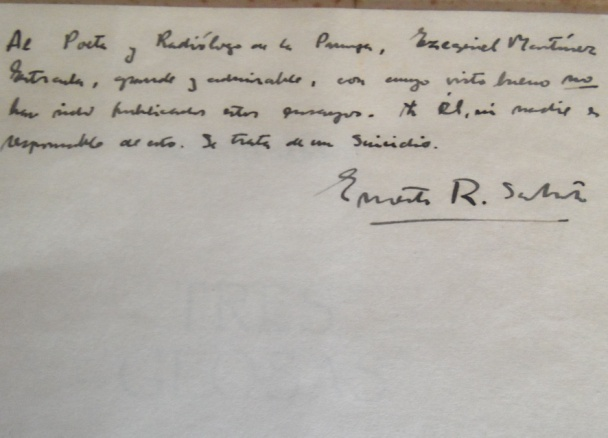 Al Poeta y Radiólogo de la Pampa, Ezequiel Martínez
Estrada, grande y admirable, con cuyo visto bueno no
han sido publicados estos ensayos. Ni Él, ni nadie es
responsable de esto. Se trata de un Suicidio.
Ernesto R. Sabato